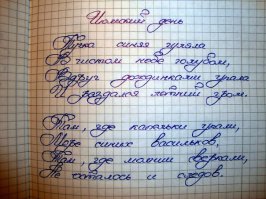 Июньский день
Тучка синяя гуляла
В чистом небе голубом,
Вдруг дождинками упала
И раздался летний гром.
Там, где капельки упали,
Море синих васильков,
Там, где молнии сверкали,
Не осталось и следов.